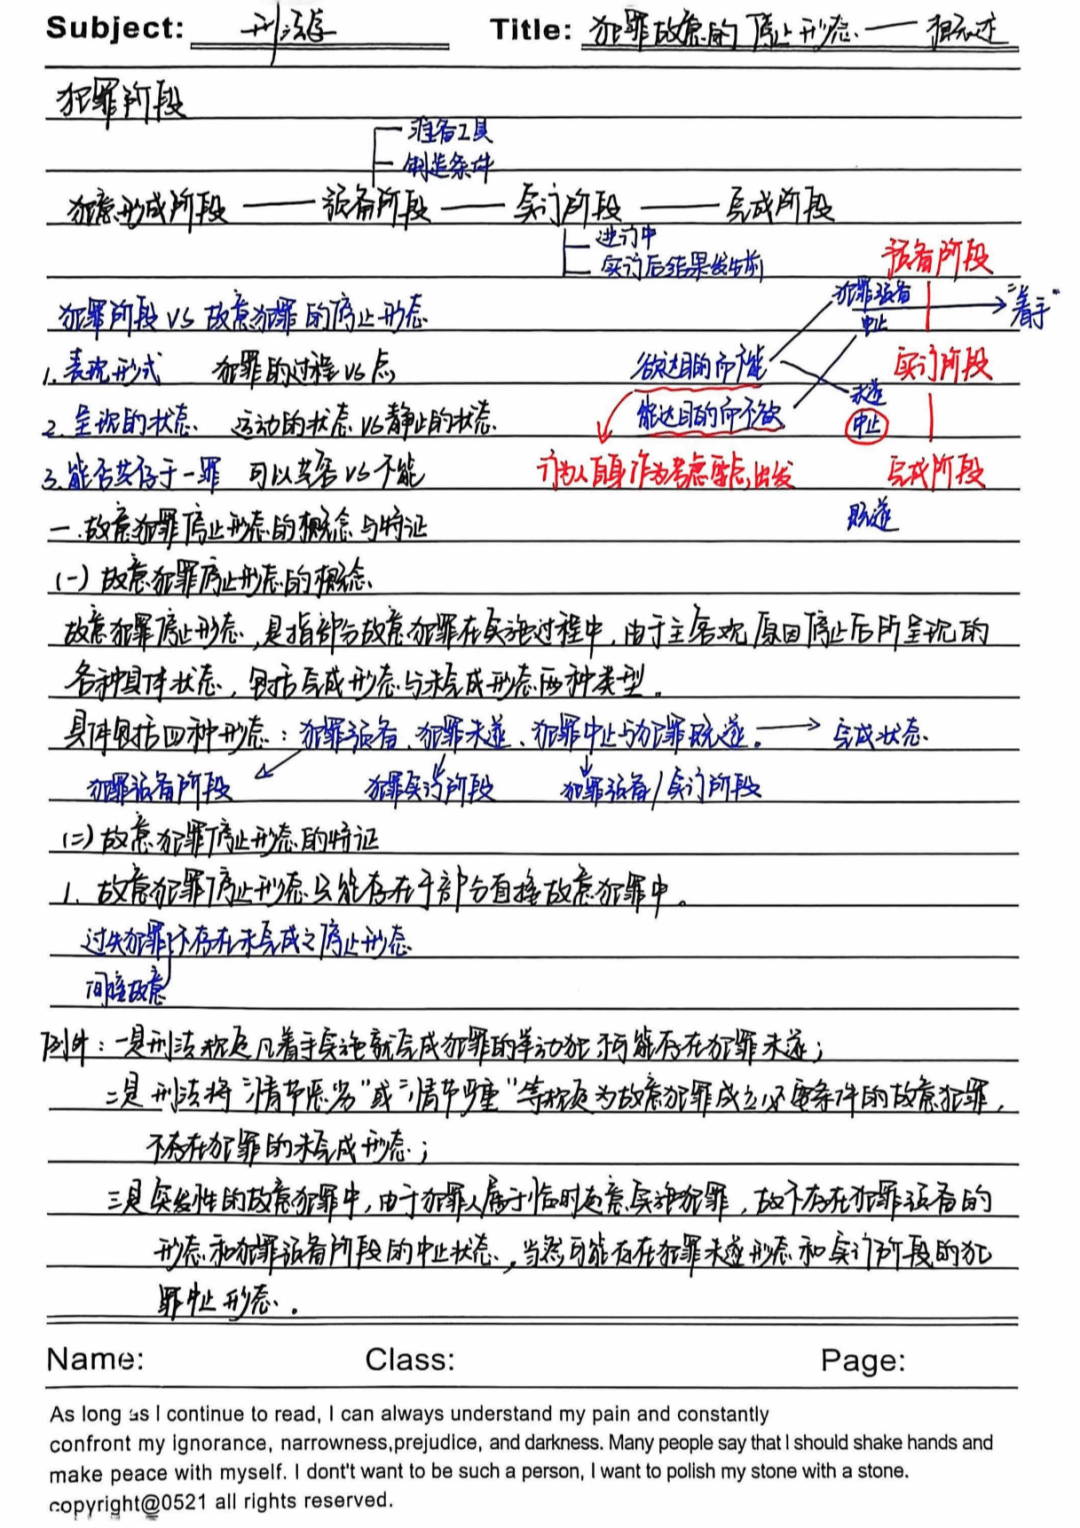 Subject: 刑法 Title: 犯罪故意的停止形态 — 概述
犯罪阶段
准备工具
制造条件
犯意形成阶段 —— 预备阶段 —— 实行阶段 —— 完成阶段
进行中
实行后结果发生前
预备阶段
犯罪预备
中止
"着手"
犯罪阶段 VS 故意犯罪的停止形态
1. 表现形式 犯罪的过程 VS 点
欲达目的而不能
实行阶段
未遂
2. 呈现的状态 运动的状态 VS 静止的状态
能达目的而不欲
中止
3. 能否共存于一罪 可以共容 VS 不能
行为人自身作为考虑要点出发
完成阶段
既遂
一.故意犯罪停止形态的概念与特征
(一)故意犯罪停止形态的概念
故意犯罪停止形态,是指部分故意犯罪在实施过程中,由于主客观原因停止后所呈现的
各种具体状态,包括完成形态与未完成形态两种类型。
具体包括四种形态:犯罪预备、犯罪未遂、犯罪中止与犯罪既遂。→ 完成状态
犯罪预备阶段 犯罪实行阶段 犯罪预备/实行阶段
(二)故意犯罪停止形态的特征
1. 故意犯罪停止形态只能存在于部分直接故意犯罪中。
过失犯罪不存在未完成之停止形态
间接故意
例外:一是刑法规定凡着手实施就完成犯罪的举动犯不可能存在犯罪未遂;
二是刑法将"情节恶劣"或"情节严重"等规定为故意犯罪成立必要条件的故意犯罪,
不存在犯罪的未完成形态;
三是突发性的故意犯罪中,由于犯罪人属于临时起意实施犯罪,故不存在犯罪预备的
形态和犯罪预备阶段的中止状态,当然可能存在犯罪未遂形态和实行阶段的犯
罪中止形态.
Name: Class: Page:
As long as I continue to read, I can always understand my pain and constantly
confront my ignorance, narrowness,prejudice, and darkness. Many people say that I should shake hands and
make peace with myself. I dont't want to be such a person, I want to polish my stone with a stone.
copyright@0521 all rights reserved.